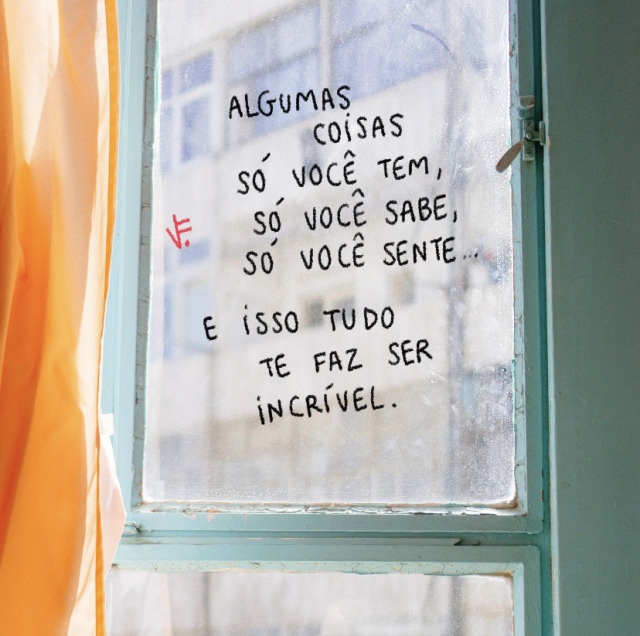 ALGUMAS
COISAS
SÓ VOCÊ TEM,
SÓ VOCÊ SABE,
SÓ VOCÊ SENTE...
E ISSO TUDO
TE FAZ SER
INCRÍVEL.
VF.